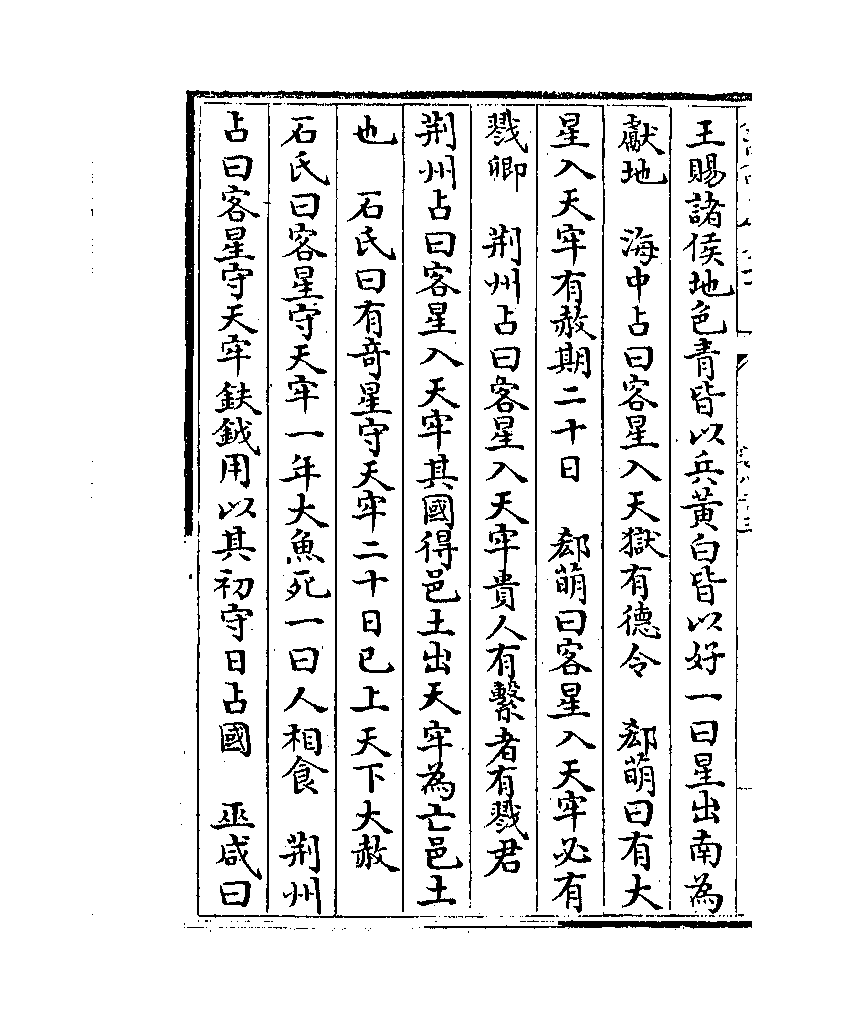 王賜諸侯地色青皆以兵黃白皆以好一曰星出南為
獻地　海中占曰客星入天獄有德令　郄萌曰有大
星入天牢有赦期二十日　郄萌曰客星入天牢必有
戮卿　荆州占曰客星入天牢貴人有繫者有戮君
荆州占曰客星入天牢其國得邑土出天牢為亡邑土
也　石氏曰有奇星守天牢二十日已上天下大赦
石氏曰客星守天牢一年大魚死一曰人相食　荆州
占曰客星守天牢鈇鉞用以其初守日占國　巫咸曰